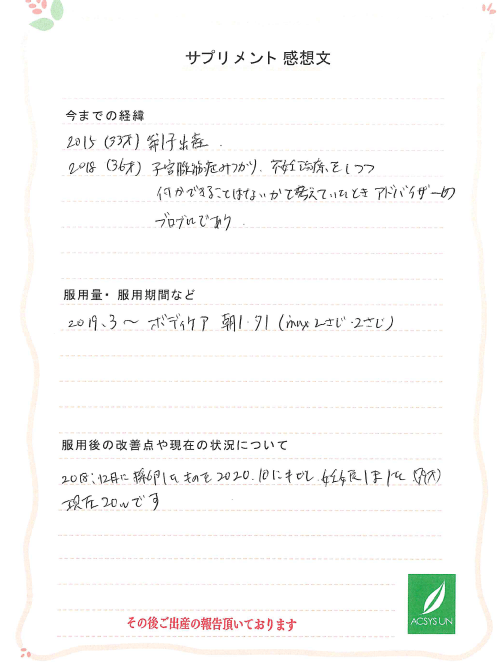 サプリメント 感想文
今までの経緯
2015 (33才) 第1子出産.
2018 (36才) 子宮腺筋症みつかり、不妊治療をしつつ
何かできることはないかと考えていたとき アドバイザーの
ブログにであう.
服用量・服用期間など
2019.3〜 ボディケア 朝1・夕1 (max 2さじ・2さじ)
服用後の改善点や現在の状況について
2018.12月に採卵したものを2020.10にもどし、妊娠しました
現在20wです
その後ご出産の報告頂いております
ACSYSUN